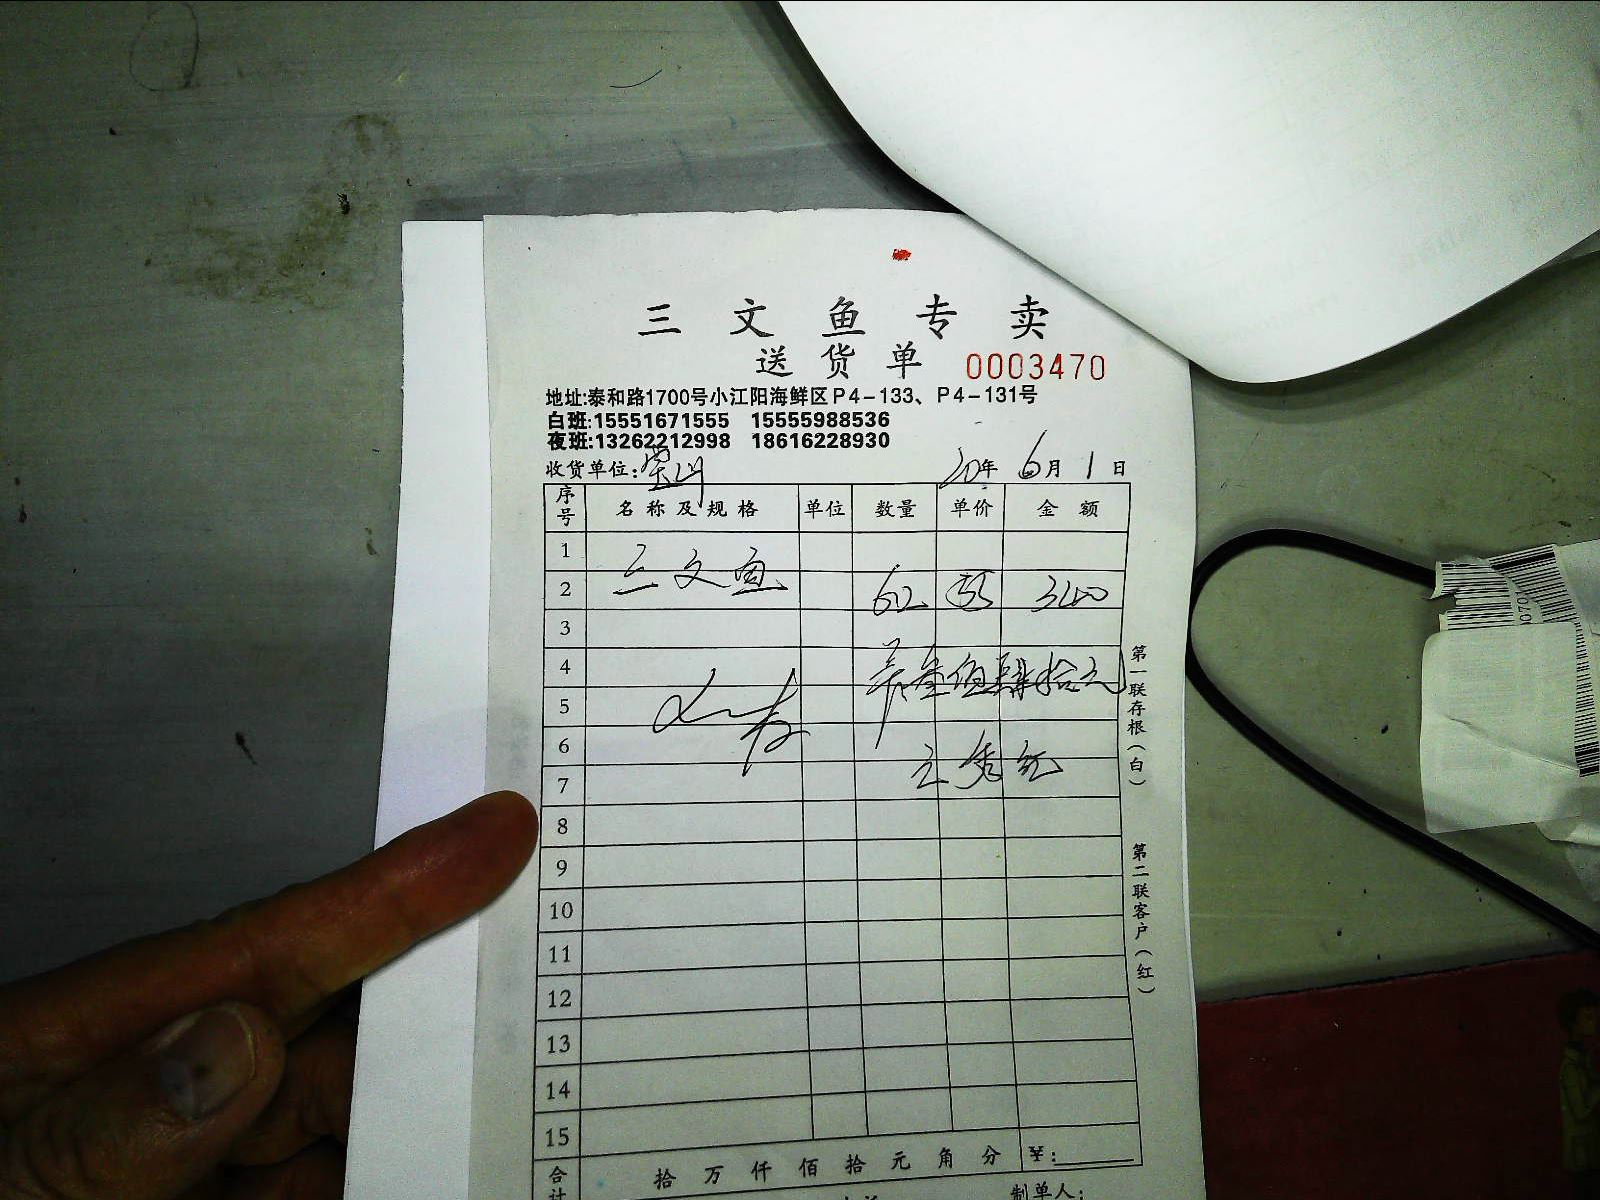 三文鱼专卖
送货单 0003470
地址:泰和路1700号小江阳海鲜区P4-133、P4-131号
白班:15551671555 15555988536
夜班:13262212998 18616228930
收货单位:宝山 20年 6月 1日
序号 名称及规格 单位 数量 单价 金额
1
2 三文鱼 62 55 340
3
4 叁佰肆拾元
5
6
7
8
9
10
11
12
13
14
15
合计 拾 万 仟 佰 拾 元 角 分 ¥:
制单人:
第一联存根(白)
第二联客户(红)